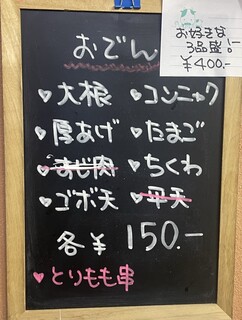 おでん
♥大根
♥コンニャク
♥厚あげ
♥たまご
♥すじ肉
♥ちくわ
♥ゴボ天
♥平天
各¥150.-
♥とりもも串
お好きな
3品盛!
¥400-